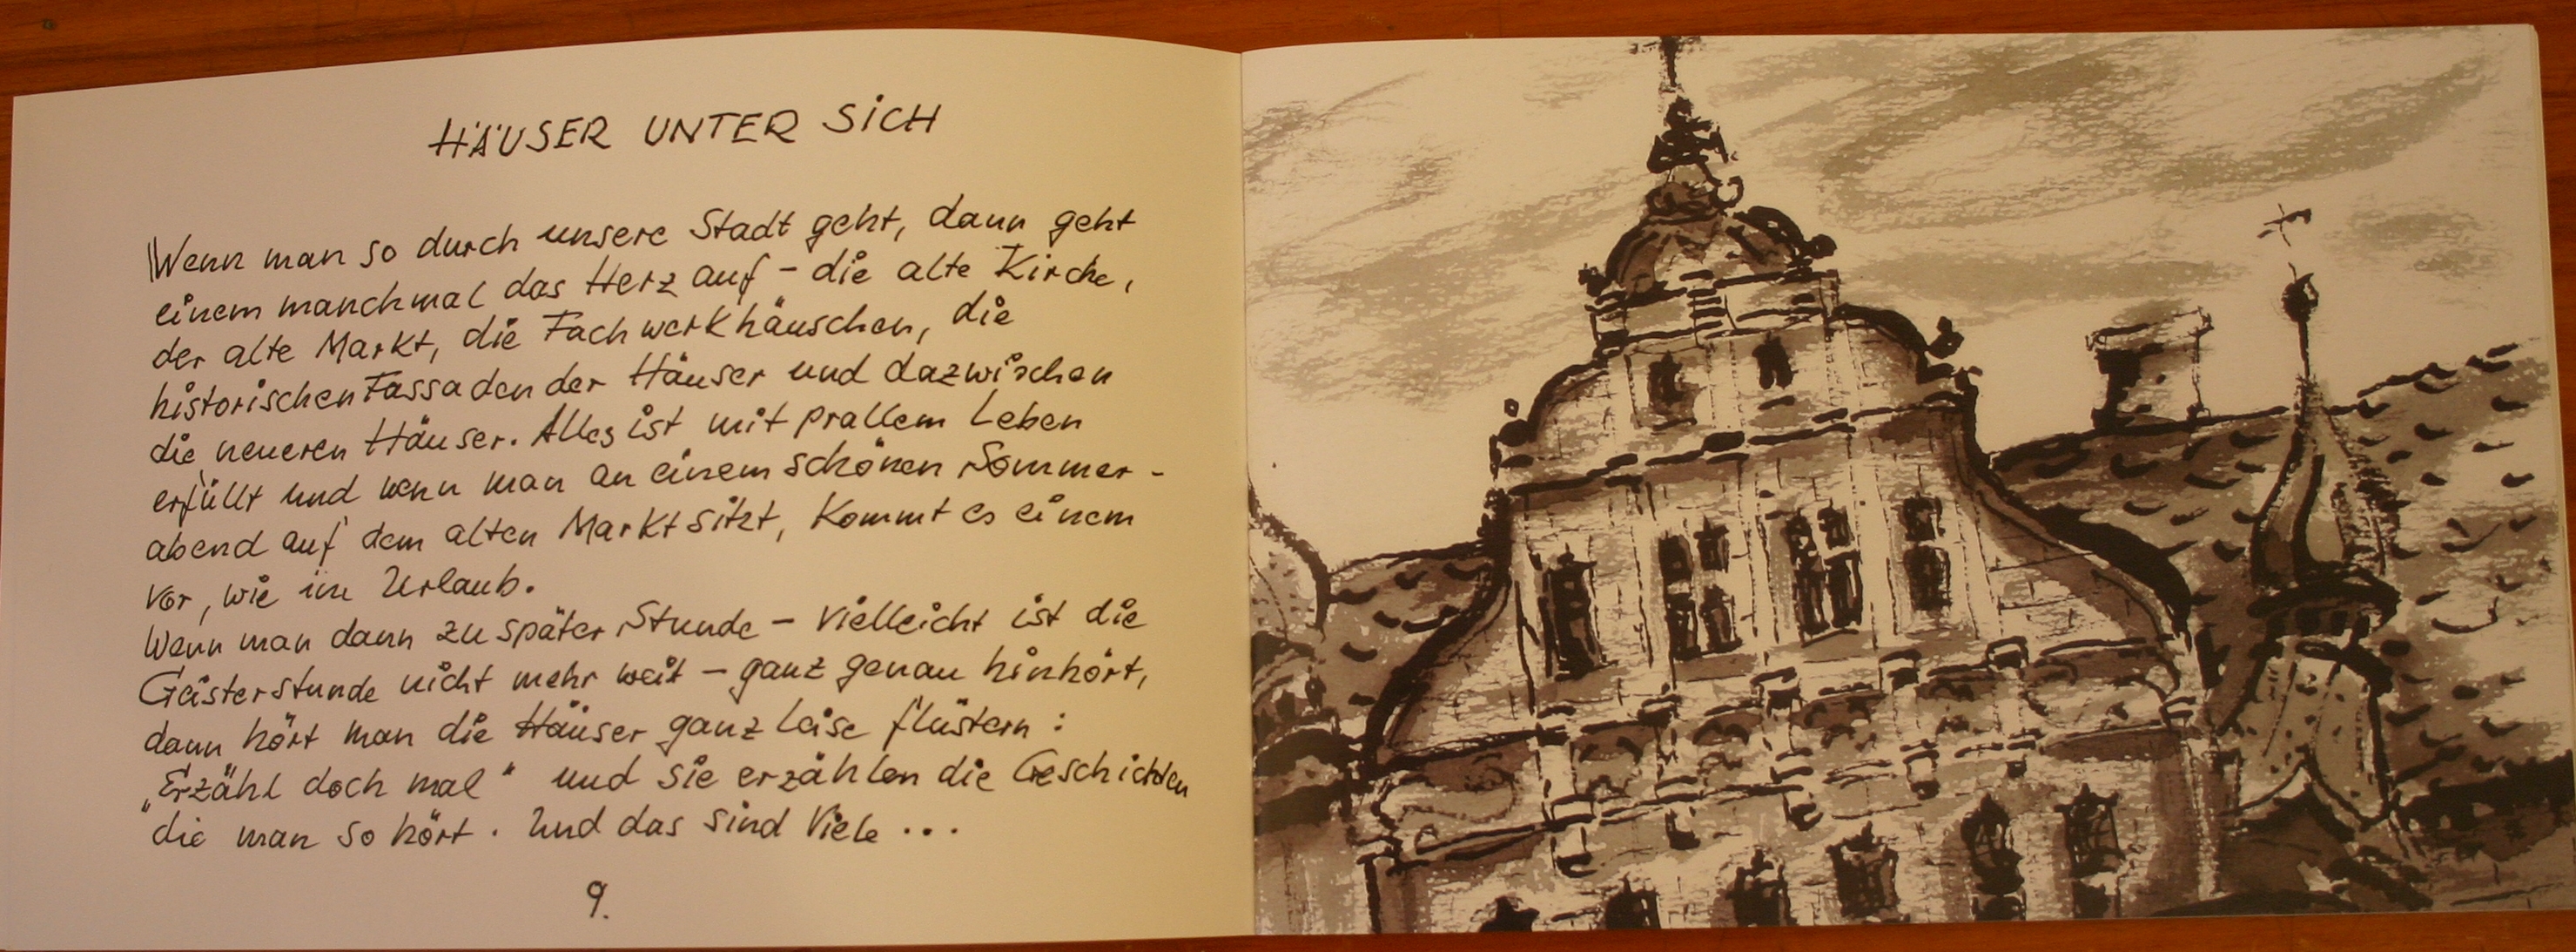 HÄUSER UNTER SICH
Wenn man so durch unsere Stadt geht, dann geht
einem manchmal das Herz auf – die alte Kirche,
der alte Markt, die Fachwerkhäuschen, die
historischen Fassaden der Häuser und dazwischen
die neueren Häuser. Alles ist mit prallem Leben
erfüllt und wenn man an einem schönen Sommer-
abend auf dem alten Markt sitzt, kommt es einem
vor, wie im Urlaub.
Wenn man dann zu später Stunde – vielleicht ist die
Geisterstunde nicht mehr weit – ganz genau hinhört,
dann hört man die Häuser ganz leise flüstern:
„Erzähl doch mal“ und sie erzählen die Geschichten
die man so hört. Und das sind Viele ...
9.